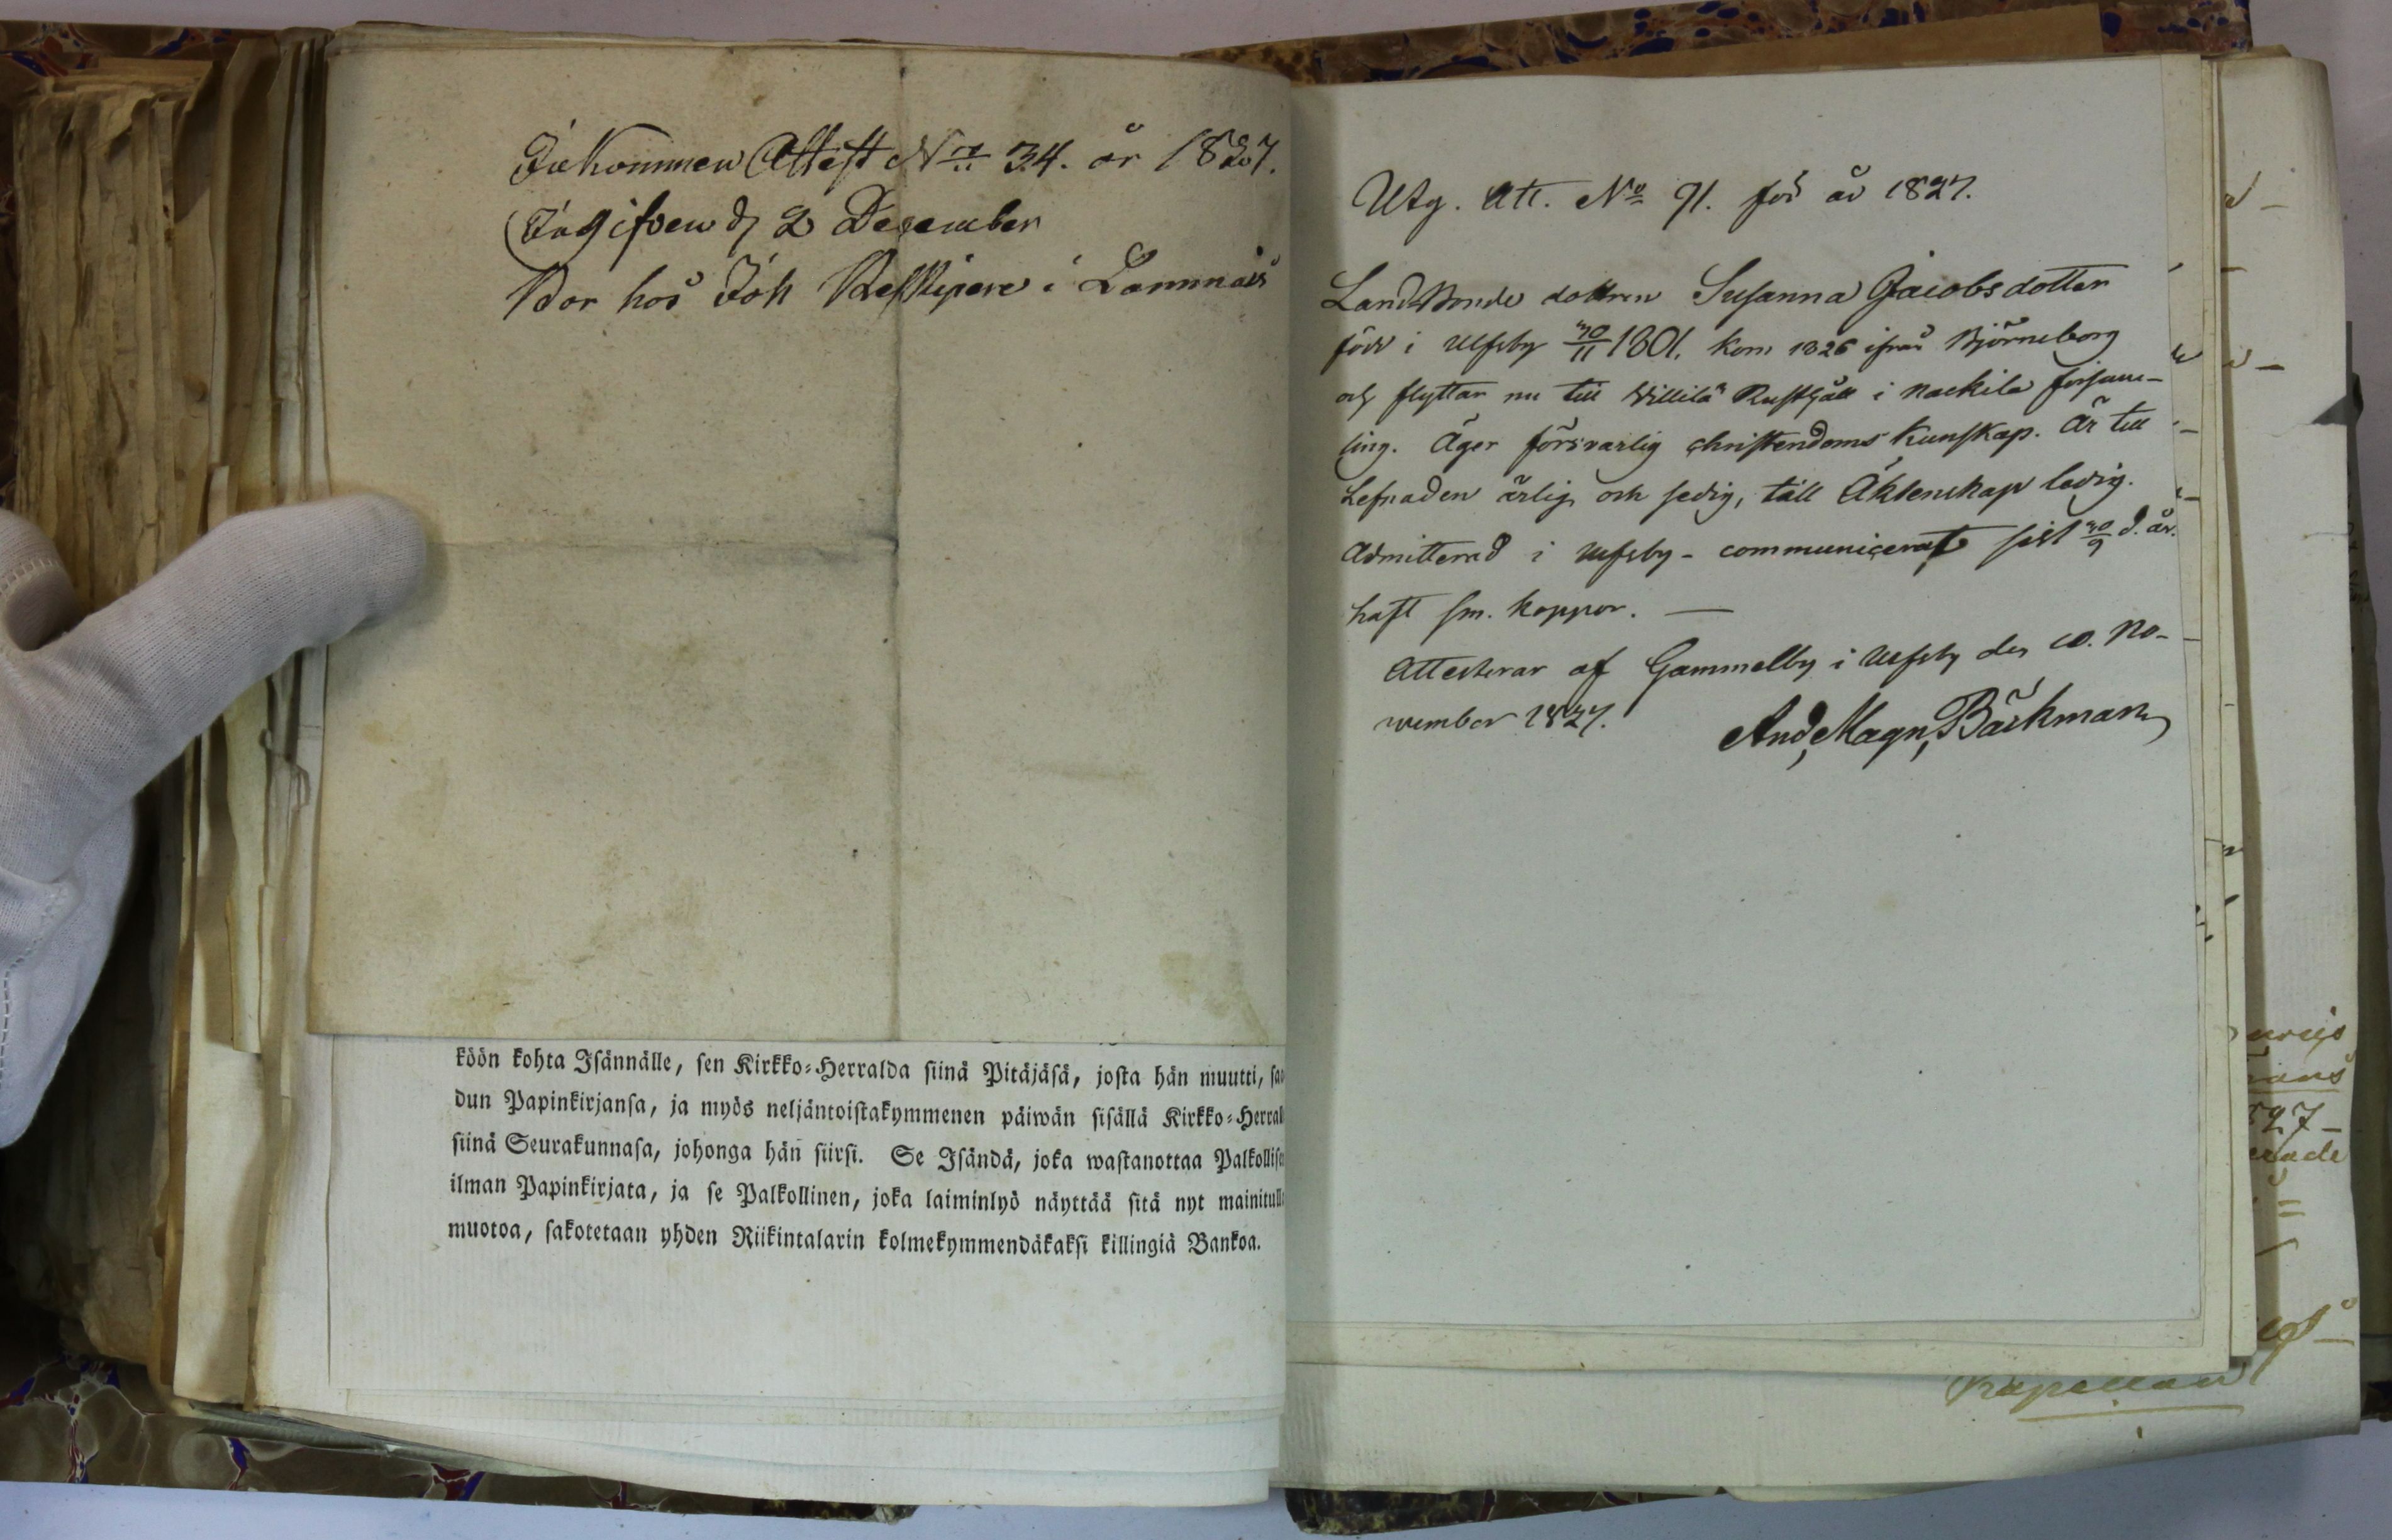 Inkommen Attest No 34. år 1827.
Ingifven d 2 December
Bor hos Joh i
köön kohta Isännälle, sen Kirkko-Herralda siinä Pitäjäsä, josta hän muutti,
dun Papinkirjansa, ja myös neljäntoistakymmenen päiwän sisällä Kirkko-Herral
siinä Seurakunnasa, johonga hän siirsi. Se Isändä, joka wastanottaa Palkollise
ilman Papinkirjata, ja se Palkollinen, joka laiminlyö näyttää sitä nyt mainitulla
muotoa, sakotetaan yhden Riikintalarin kolmekymmendäkaksi killingiä Bankoa.
Utg. Att. No 91. för år 1827.
Landbonde dottren Susanna Jacobsdotter
född i Ulfsby 30/11 1801. kom 1826 ifrån Björneborg
och flyttar nu till Willilä Rusthåll i Nackila försam-
ling. Äger försvarlig christendoms kunskap. Är till
Lefnaden ärlig och sedig, till Äktenskap ledig.
Admitterad i Ulfsby - communicerat sist 30/9 d. år.
haft sm. koppor. —
Attesterar af Gammelby i Ulfsby den 10. No-
vember 1827. And, Magn, Bäckman
Kapellan